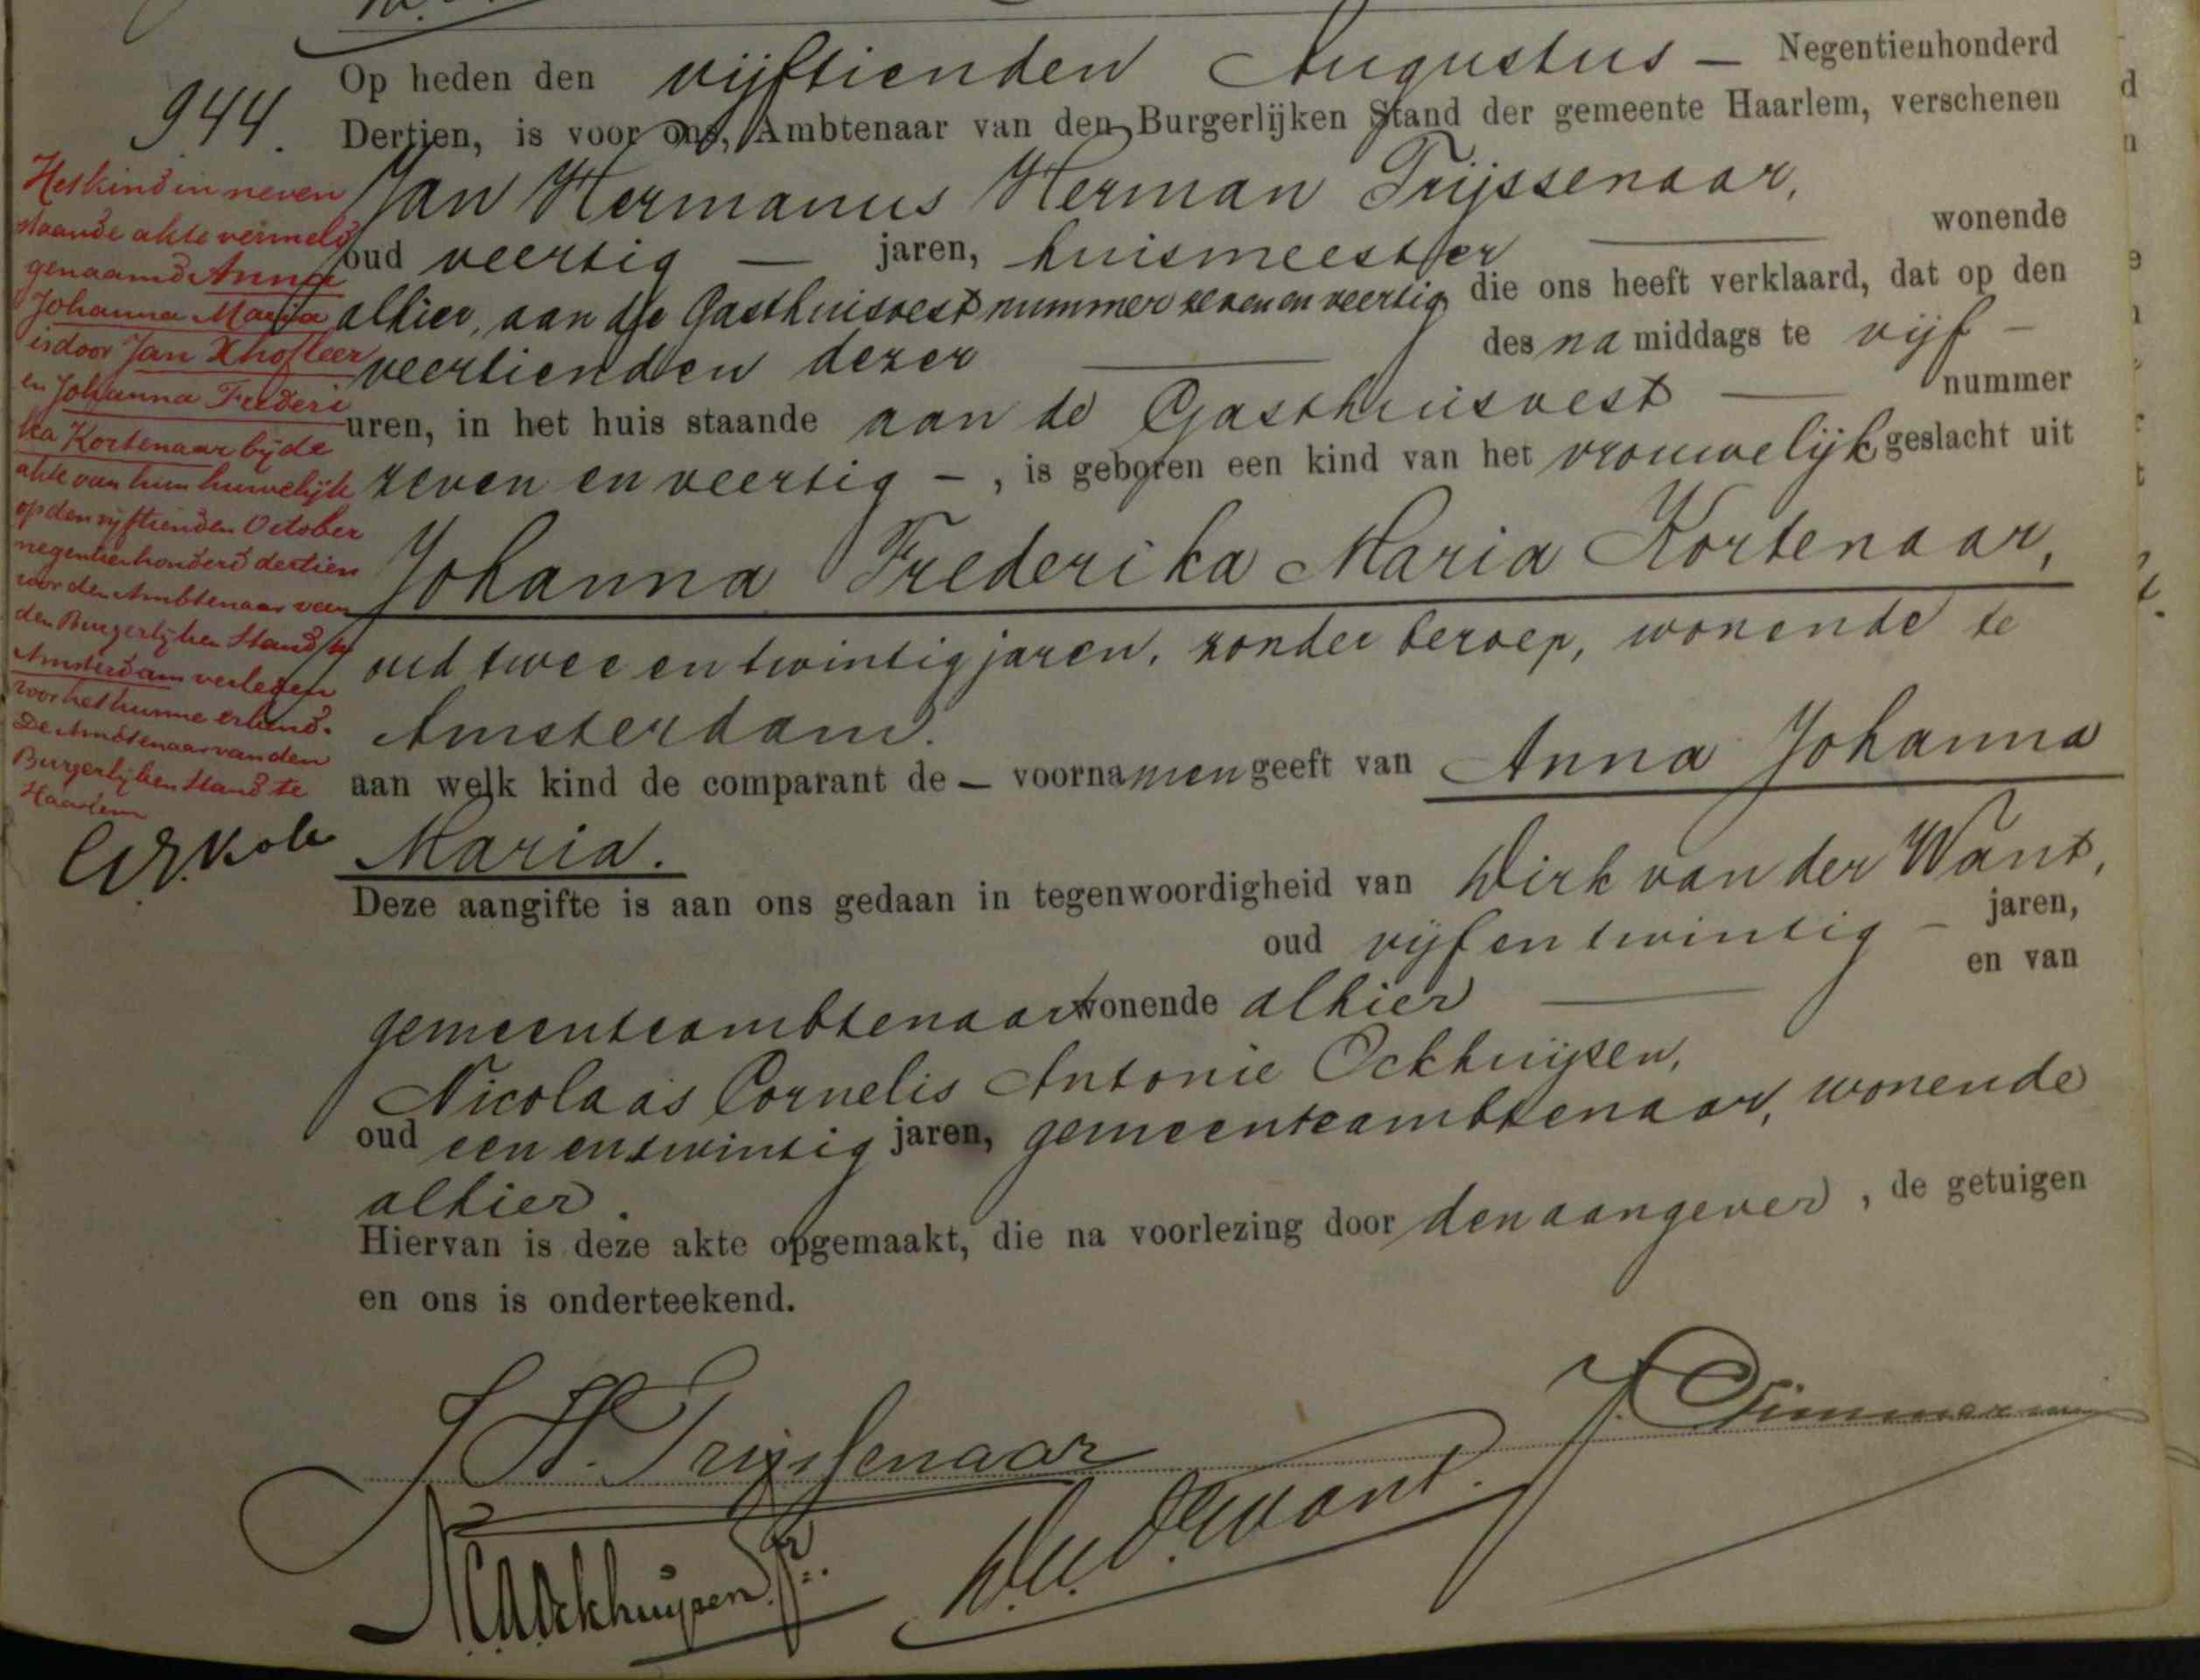 944.
Op heden den vijftienden Augustus — Negentienhonderd
Dertien, is voor ons, Ambtenaar van den Burgerlijken Stand der gemeente Haarlem, verschenen
Jan Hermanus Herman Trijssenaar,
oud veertig — jaren, huismeester — wonende
alhier, aan de Gasthuisvest nummer zeven en veertig die ons heeft verklaard, dat op den
veertienden dezer — des na middags te vijf —
uren, in het huis staande aan de Gasthuisvest — nummer
zeven en veertig — , is geboren een kind van het vrouwelijk geslacht uit
Johanna Frederika Maria Kortenaar,
oud twee en twintig jaren, zonder beroep, wonende te
Amsterdam.
aan welk kind de comparant de — voornamen geeft van Anna Johanna
Maria.
Deze aangifte is aan ons gedaan in tegenwoordigheid van Dirk van der Want,
oud vijf en twintig — jaren,
gemeenteambtenaar wonende alhier — en van
Nicolaas Cornelis Antonie Ockhuijsen,
oud een en twintig jaren, gemeenteambtenaar, wonende
alhier.
Hiervan is deze akte opgemaakt, die na voorlezing door den aangever, de getuigen
en ons is onderteekend.
Het kind in neven
staande akte vermeld
genaamd Anna
Johanna Maria
is door Jan
en Johanna Frederi
ka Kortenaar bij de
akte van hun huwelijk
op den vijftienden October
negentienhonderd dertien
voor den Ambtenaar van
den Burgerlijken Stand te
Amsterdam verleden
voor het hunne erkend.
De Ambtenaar van den
Burgerlijken Stand te
Haarlem
J H. Trijssenaar
NCAOckhuijsen Jr.
D. v. d. Want.